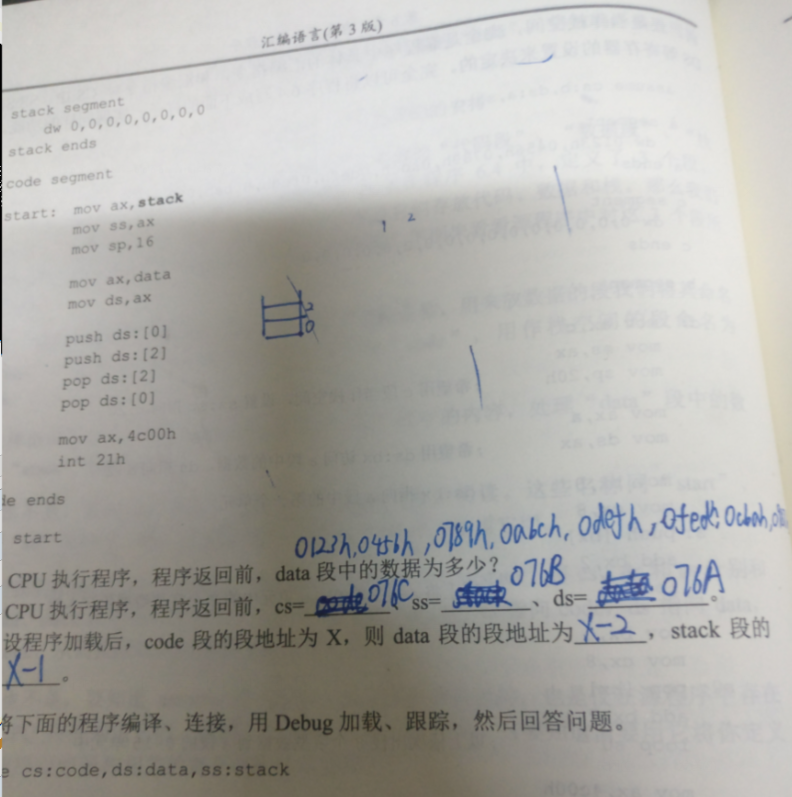 汇编语言(第3版)
stack segment
dw 0,0,0,0,0,0,0,0
stack ends
code segment
start: mov ax,stack
mov ss,ax
mov sp,16
1 2
mov ax,data
mov ds,ax
push ds:[0]
2
0
push ds:[2]
pop ds:[2]
pop ds:[0]
mov ax,4c00h
int 21h
de ends
start
0123h,0456h,0789h,0abch,0defh,0fedh,0cbah,
CPU 执行程序，程序返回前，data 段中的数据为多少？
CPU 执行程序，程序返回前，cs= 076C ss= 076B 、ds= 076A 。
设程序加载后，code 段的段地址为 X，则 data 段的段地址为 X-2 ，stack 段的
X-1 。
将下面的程序编译、连接，用 Debug 加载、跟踪，然后回答问题。
e cs:code,ds:data,ss:stack